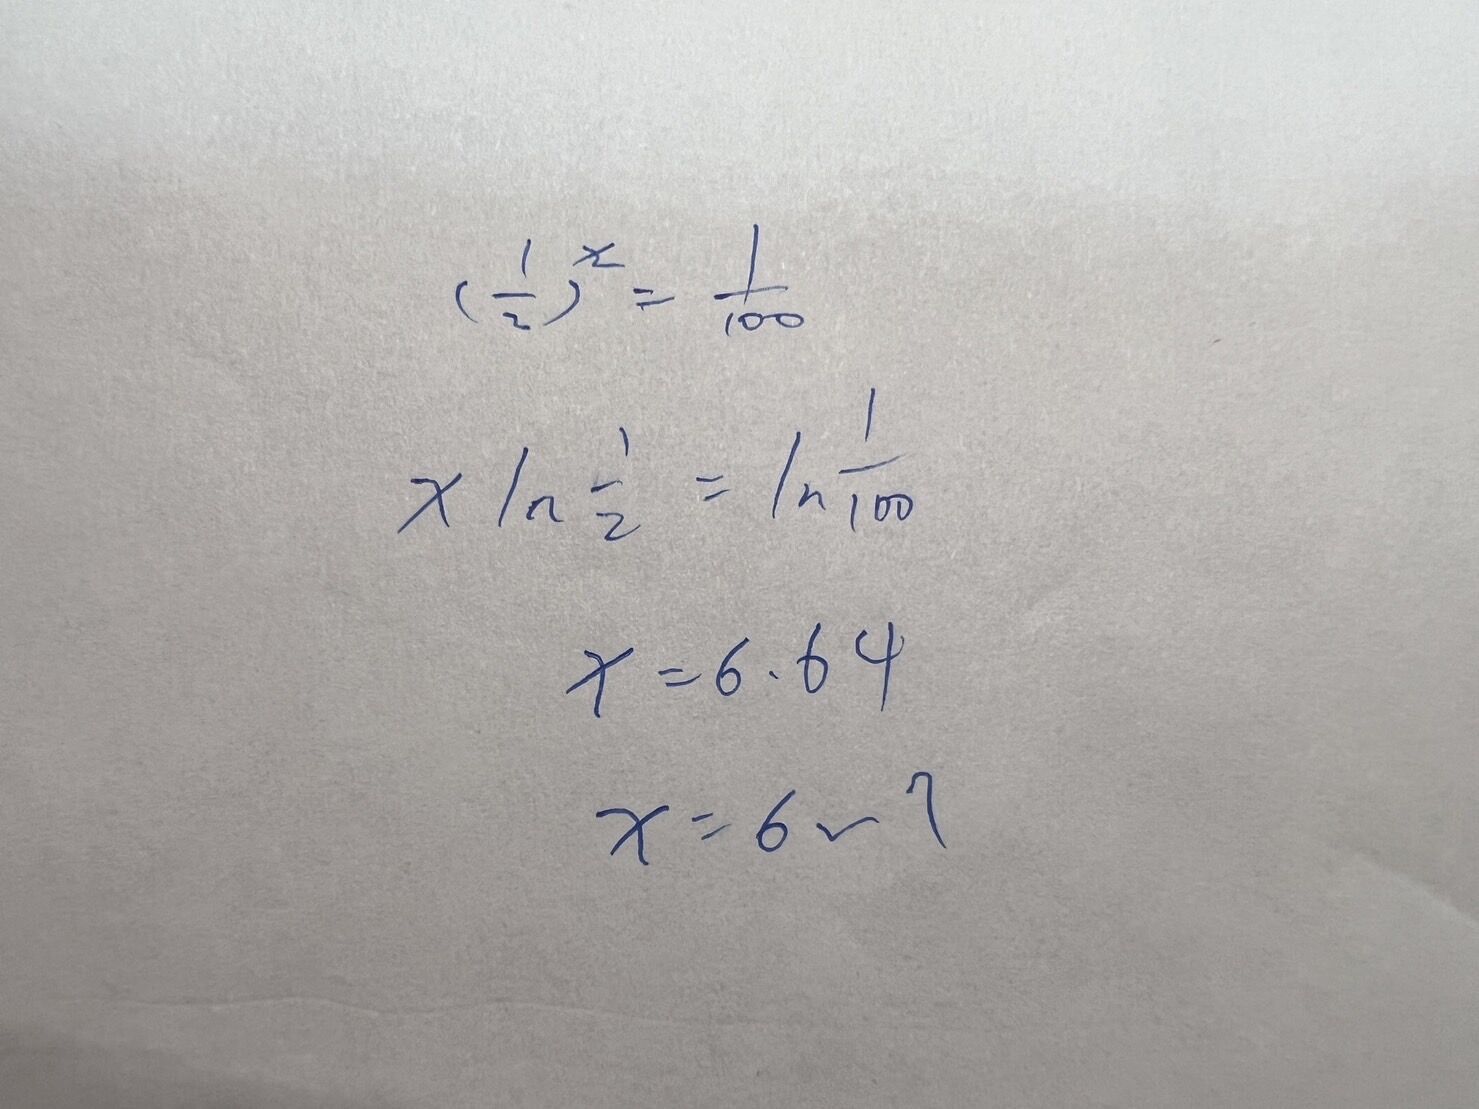 (1/2)^x = 1/100
x ln 1/2 = ln 1/100
x = 6.64
x = 6 or 7